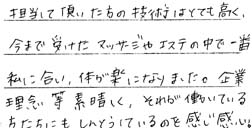 担当して頂いた方の技術はとても高く、
今まで受けたマッサージやエステの中で一番
私に合い、体が楽になりました。企業
理念等素晴しく、それが働いている
方たちにもしんとうしているのを感じ感い